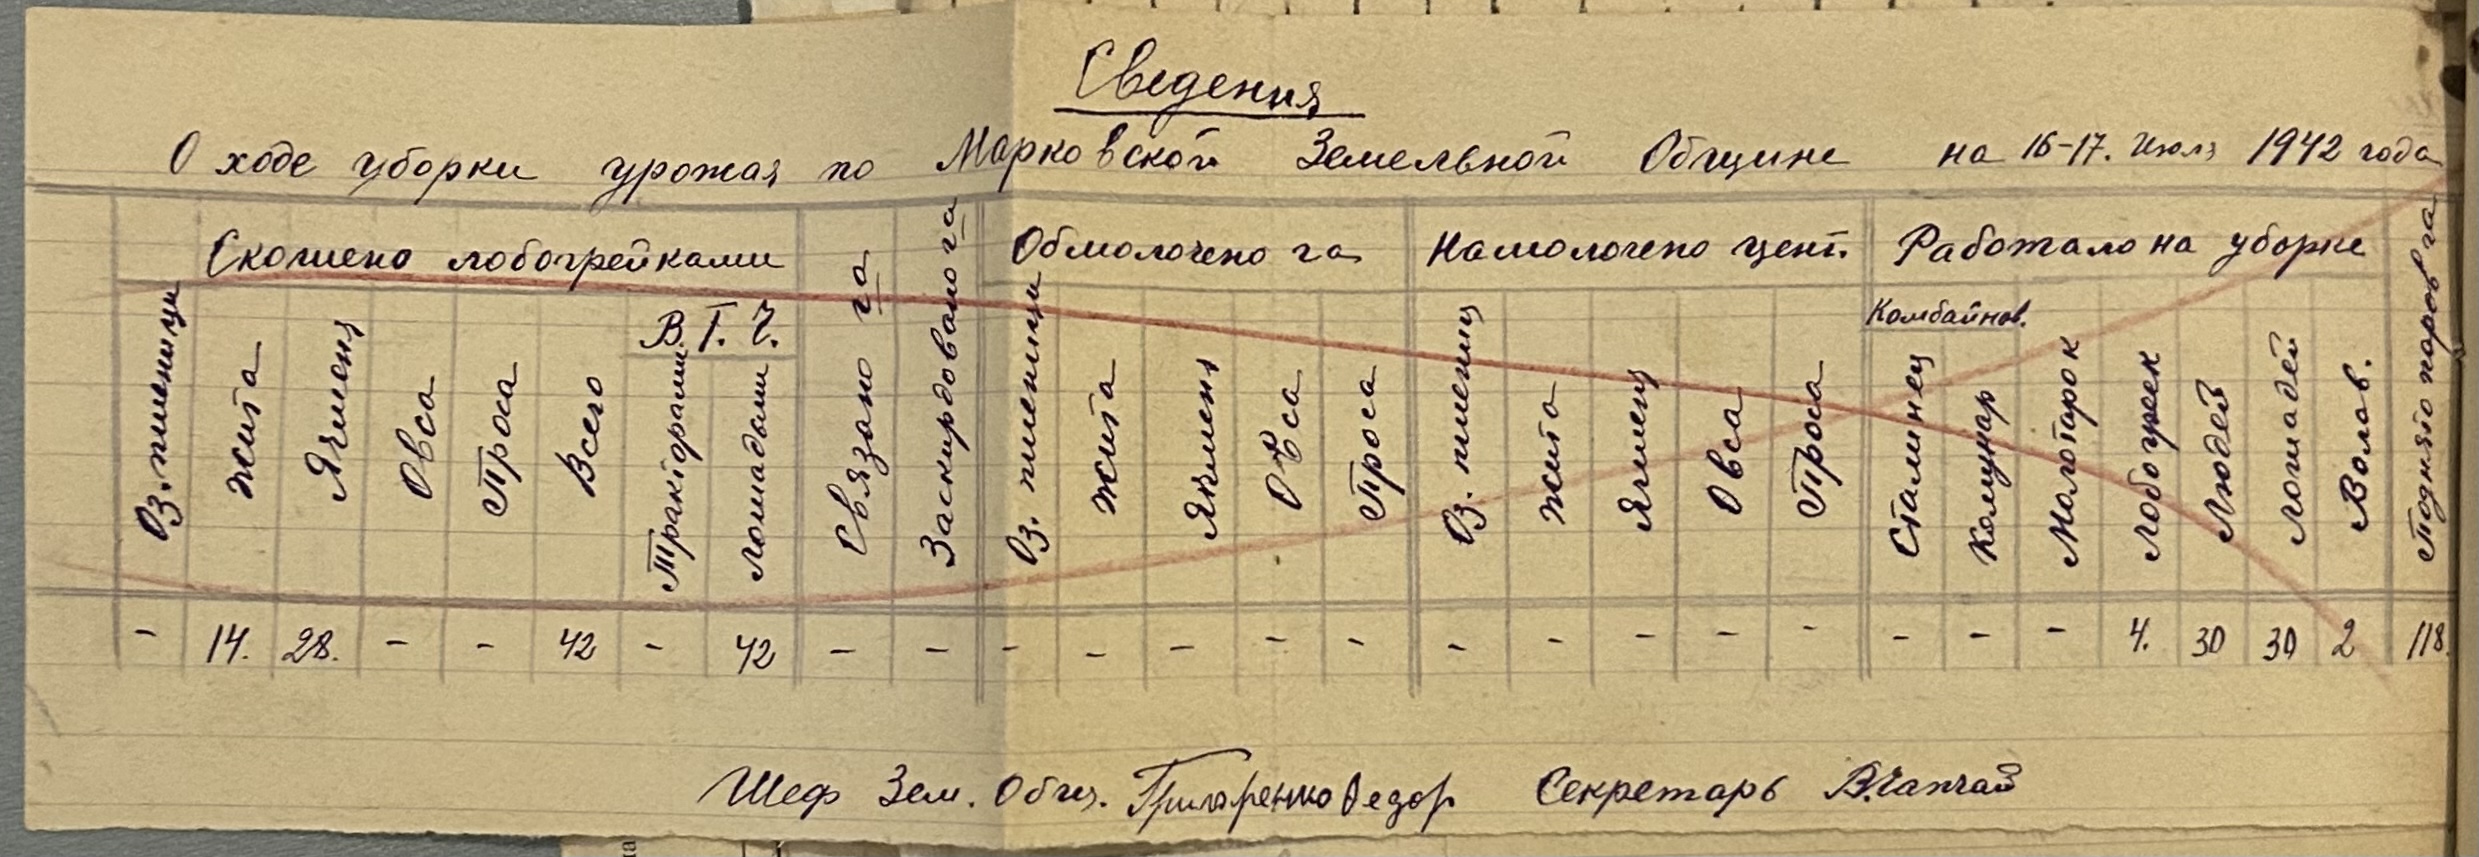 Сведения
О ходе уборки урожая по Марковской Земельной Общине на 16-17. Июля 1942 года
Скошено лобогрейками
Обмолочено га
Намолочено цент.
Работало на уборке
В. Т. Ч.
Комбайнов.
Оз. пшеницы
Жита
Ячменя
Овса
Проса
Всего
Тракторами
лошадьми
Связано га
Заскирдовано га
Оз. пшеницы
Жита
Ячменя
Овса
Проса
Оз. пшениц
Жита
Ячменя
Овса
Проса
Сталинец
Комунар
Молотарок
Лобогреек
Людей
Лошадей
Волов.
Поднято паров га
- 14. 28. - - 42 - 42 - - - - - - - - - - - - - - - 4. 30 30 2 118.
Шеф Зем. Общ. Федор Секретарь